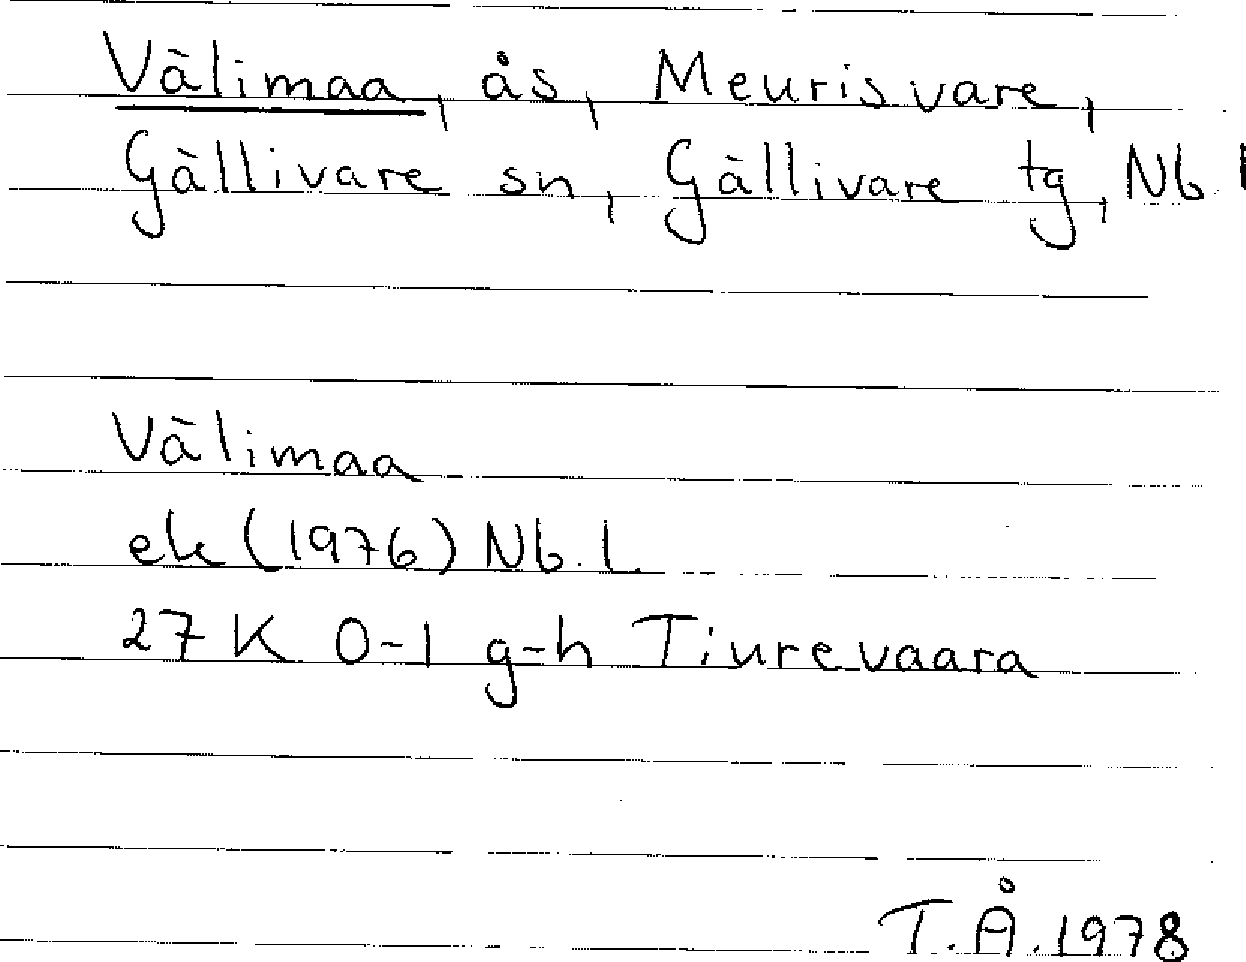 Välimaa, ås, Meurisvare,
Gällivare sn, Gällivare tg, Nb. l
Välimaa
ek (1976) Nb. L
27 K 0-1 g-h Tiurevaara
T.Å. 1978